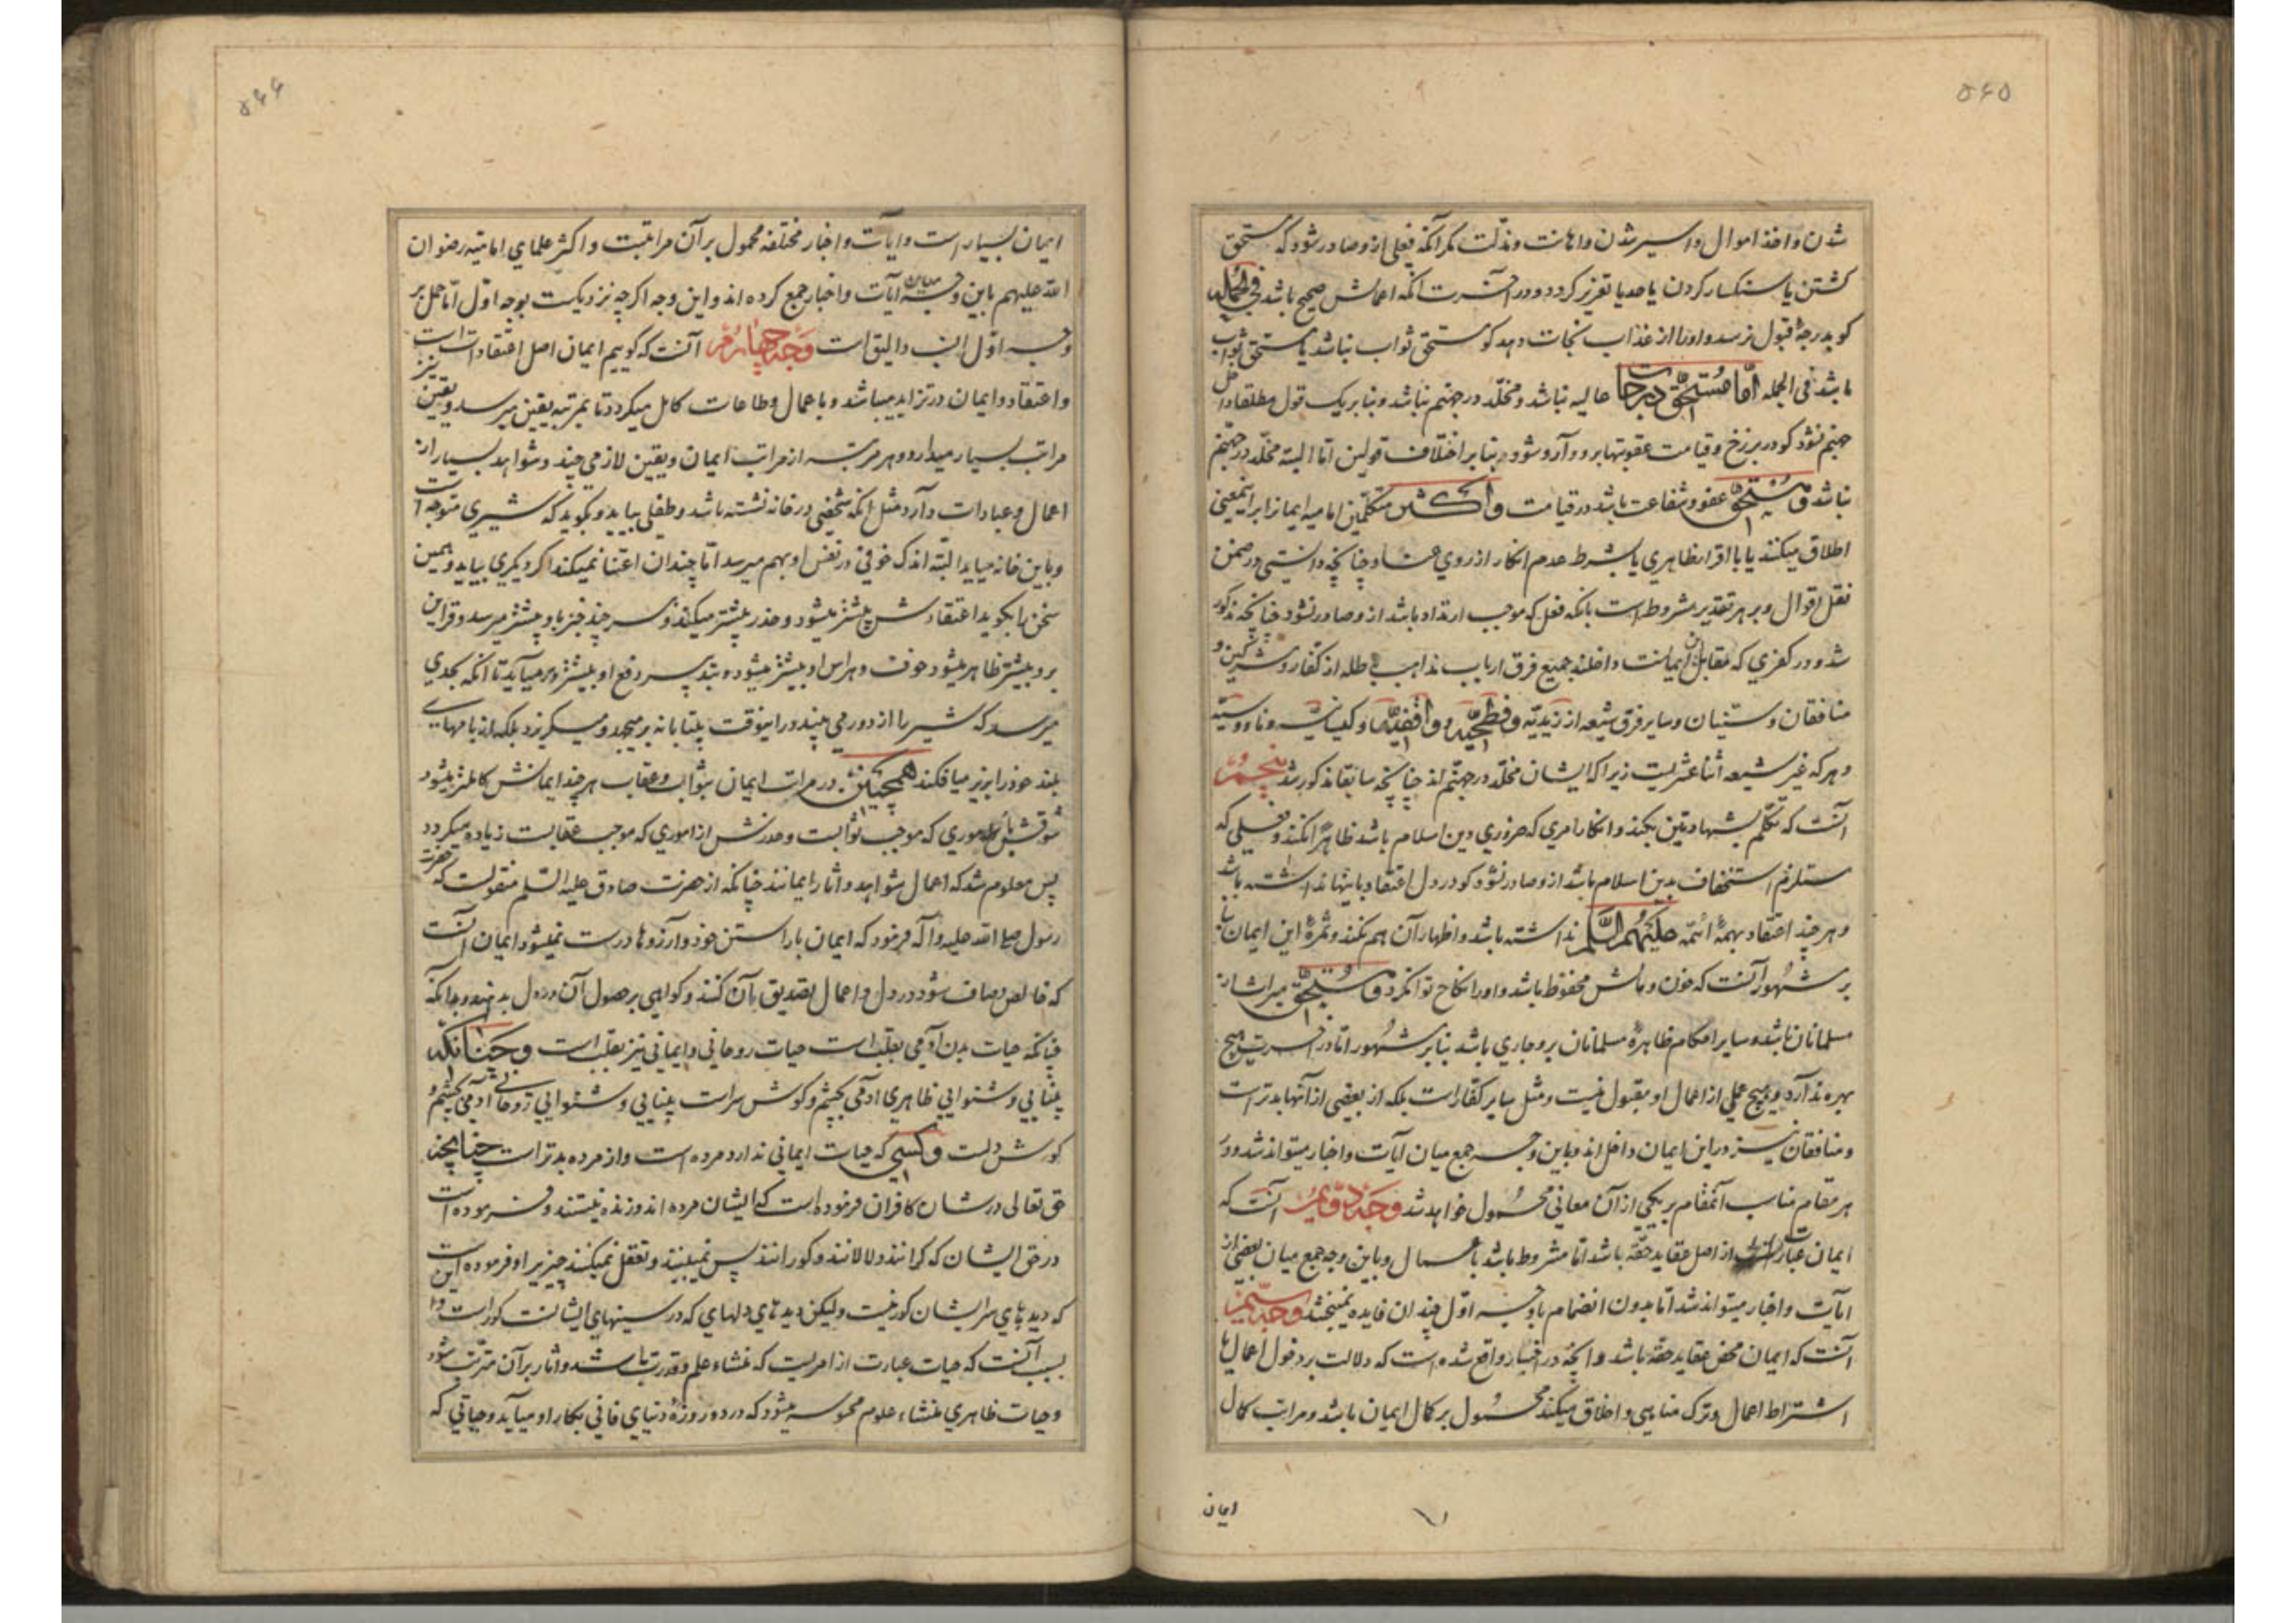 ۵۶۵
شدن و اخذ اموال و اسیر شدن و اهانت و مذلت مکر آنکه فعلی ازو صادر شود که مستحق
کشتن یا سنکسار کردن یا حد یا تعزیر کردد و در آخرت آنکه اعمالش صحیح باشد فی الجمله
کو بدرجهٔ قبول نرسد و او را از عذاب نجات دهد کو مستحق ثواب نباشد یا مستحق ثواب
باشد فی الجمله امّا مستحق درجات عالیه نباشد و مخلّد در جهنم نباشد و بنا بر یک قول مطلقا داخل
جهنم نشود کو در برزخ و قیامت عقوبتها برو وارد شود و بنا بر اختلاف قولین امّا البته مخلّد در جهنم
نباشد و مستحق عفو و شفاعت باشد در قیامت و اکثر متکلّمین امامیه ایمانرا برین معنی
اطلاق میکنند یا با اقرار ظاهری یا بشرط عدم انکار از روی عناد چنانچه دانستی در ضمن
نقل اقوال و بر هر تقدیر مشروط است بانکه فعل که موجب ارتداد باشد ازو صادر نشود چنانچه مذکور
شد و در کفری که مقابل این ایمانست داخلند جمیع فرق ارباب مذاهب باطله از کفار و مشرکین و
منافقان و سنّیان و سایر فرق شیعه از زیدیّه و فطحیّه و واقفیّه و کیسانیه و ناووسیّه
و هر که غیر شیعه اثناعشریست زیرا که ایشان مخلّد در جهنّم اند چنانچه سابقا مذکور شد پنجم
آنست که تکلّم بشهادتین بکند و انکار امری که ضروری دین اسلام باشد ظاهرا نکند و فعلی که
مستلزم استخفاف بدین اسلام باشد ازو صادر نشود کو در دل اعتقاد باینها نداشته باشد
و هر چند اعتقاد بهمهٔ ائمّه علیهم السّلم نداشته باشد و اظهار آن هم نکند و ثمرهٔ این ایمان بنا
بر مشهور آنست که خون و مالش محفوظ باشد و او را نکاح توان کرد و مستحق میراث از
مسلمانان باشد و سایر احکام ظاهرهٔ مسلمانان برو جاری باشد بنا بر مشهور امّا در آخرت هیچ
بهره ندارد و هیچ عملی از اعمال او مقبول نیست و مثل سایر کفّار است بلکه از بعضی از آنها بدتر است
و منافقان نیز در این ایمان داخل اند و باین وجه جمع میان آیات و اخبار میتواند شد و در
هر مقام مناسب آنمقام بر یکی از آن معانی محمول خواهد شد وجه دویم آنست که
ایمان عبارت از اصل عقاید حقّه باشد امّا مشروط باشد باعمال و باین وجه جمع میان بعضی از
آیات و اخبار میتواند شد امّا بدون انضمام با وجه اوّل چندان فایده نمیبخشد وجه سیّم
آنست که ایمان محض عقاید حقّه باشد و آنچه در اخبار واقع شده است که دلالت بر دخول اعمال یا
اشتراط اعمال و ترک مناهی و اخلاق میکند محمول بر کمال ایمان باشد و مراتب کمال
ایمان
۵۶۶
ایمان بسیار است و آیات و اخبار مختلفه محمول بر آن مراتبست و اکثر علمای امامیّه رضوان
الله علیهم باین وجه میان آیات و اخبار جمع کرده اند و این وجه اکرچه نزدیکست بوجه اوّل امّا حمل بر
وجه اوّل انسب و الیق است وجه چهارم آنست که کوییم ایمان اصل اعتقاد است
و اعتقاد و ایمان در تزاید میباشد و باعمال و طاعات کامل میکردد تا بمرتبهٔ یقین میرسد و یقین نیز
مراتب بسیار میدارد و هر مرتبه از مراتب ایمان و یقین لازمی چند و شواهد بسیار از
اعمال و عبادات دارد مثل آنکه شخصی در خانه نشسته باشد و طفلی بیاید و بکوید که شیری متوجه است
و باین خانه میاید البتّه اندک خوفی در نفس او بهم میرسد امّا چندان اعتنا نمیکند اکر دیکری بیاید و همین
سخن را بکوید اعتقادش بیشتر میشود و حذر بیشتر میکند و هر چند خبر باو بیشتر میرسد و قراین
برو بیشتر ظاهر میشود خوف و هراس او بیشتر میشود و بتدبیر دفع او بیشتر در میآید تا آنکه بحدی
میرسد که شیر را از دور می بیند و راینوقت بیتابانه بر میجهد و میکریزد بلکه از بامهای
بلند خود را بزیر میافکند همچنین در مراتب ایمان بثواب و عقاب هر چند ایمانش کاملتر میشود
شوقش باموری که موجب ثوابست و حذرش از اموری که موجب عقابست زیاده میکردد
پس معلوم شد که اعمال شواهد و اثار ایمانند چنانکه از حضرت صادق علیه السّلم منقولست که حضرت
رسول صلی الله علیه و آله فرمود که ایمان بآراستن خود و آرزوها درست نمیشود ایمان آنست
که خالص و صاف شود در دل و اعمال تصدیق بآن کنند و کواهی بر حصول آن در دل بدهند و چنانکه
چنانکه حیات بدن آدمی بقلب است حیات روحانی و ایمانی نیز بقلب است و چنانکه
بینایی و شنوایی ظاهری آدمی بچشم و کوش سر است بینایی و شنوایی روحانی آدمی بچشم و
کوش دلست و کسی که حیات ایمانی ندارد مرده است و از مرده بدتر است چنانچه
حق تعالی در شان کافران فرموده است که ایشان مرده اند و زنده نیستند و فرموده است
در حق ایشان که کرانند و لالانند و کورانند پس نمیبینند و تعقل نمیکنند چیزیرا و فرموده است
که دیدهای سر ایشان کور نیست ولیکن دیدهای دلهای که در سینهای ایشانست کور است و این
بسبب آنست که حیات عبارت از امریست که منشاء علم و قدرت باشد و اثار بر آن مترتب شود
و حیات ظاهری منشاء علوم محسوسه میشود که در دو روزهٔ دنیای فانی بکار او میآید و حیاتی که